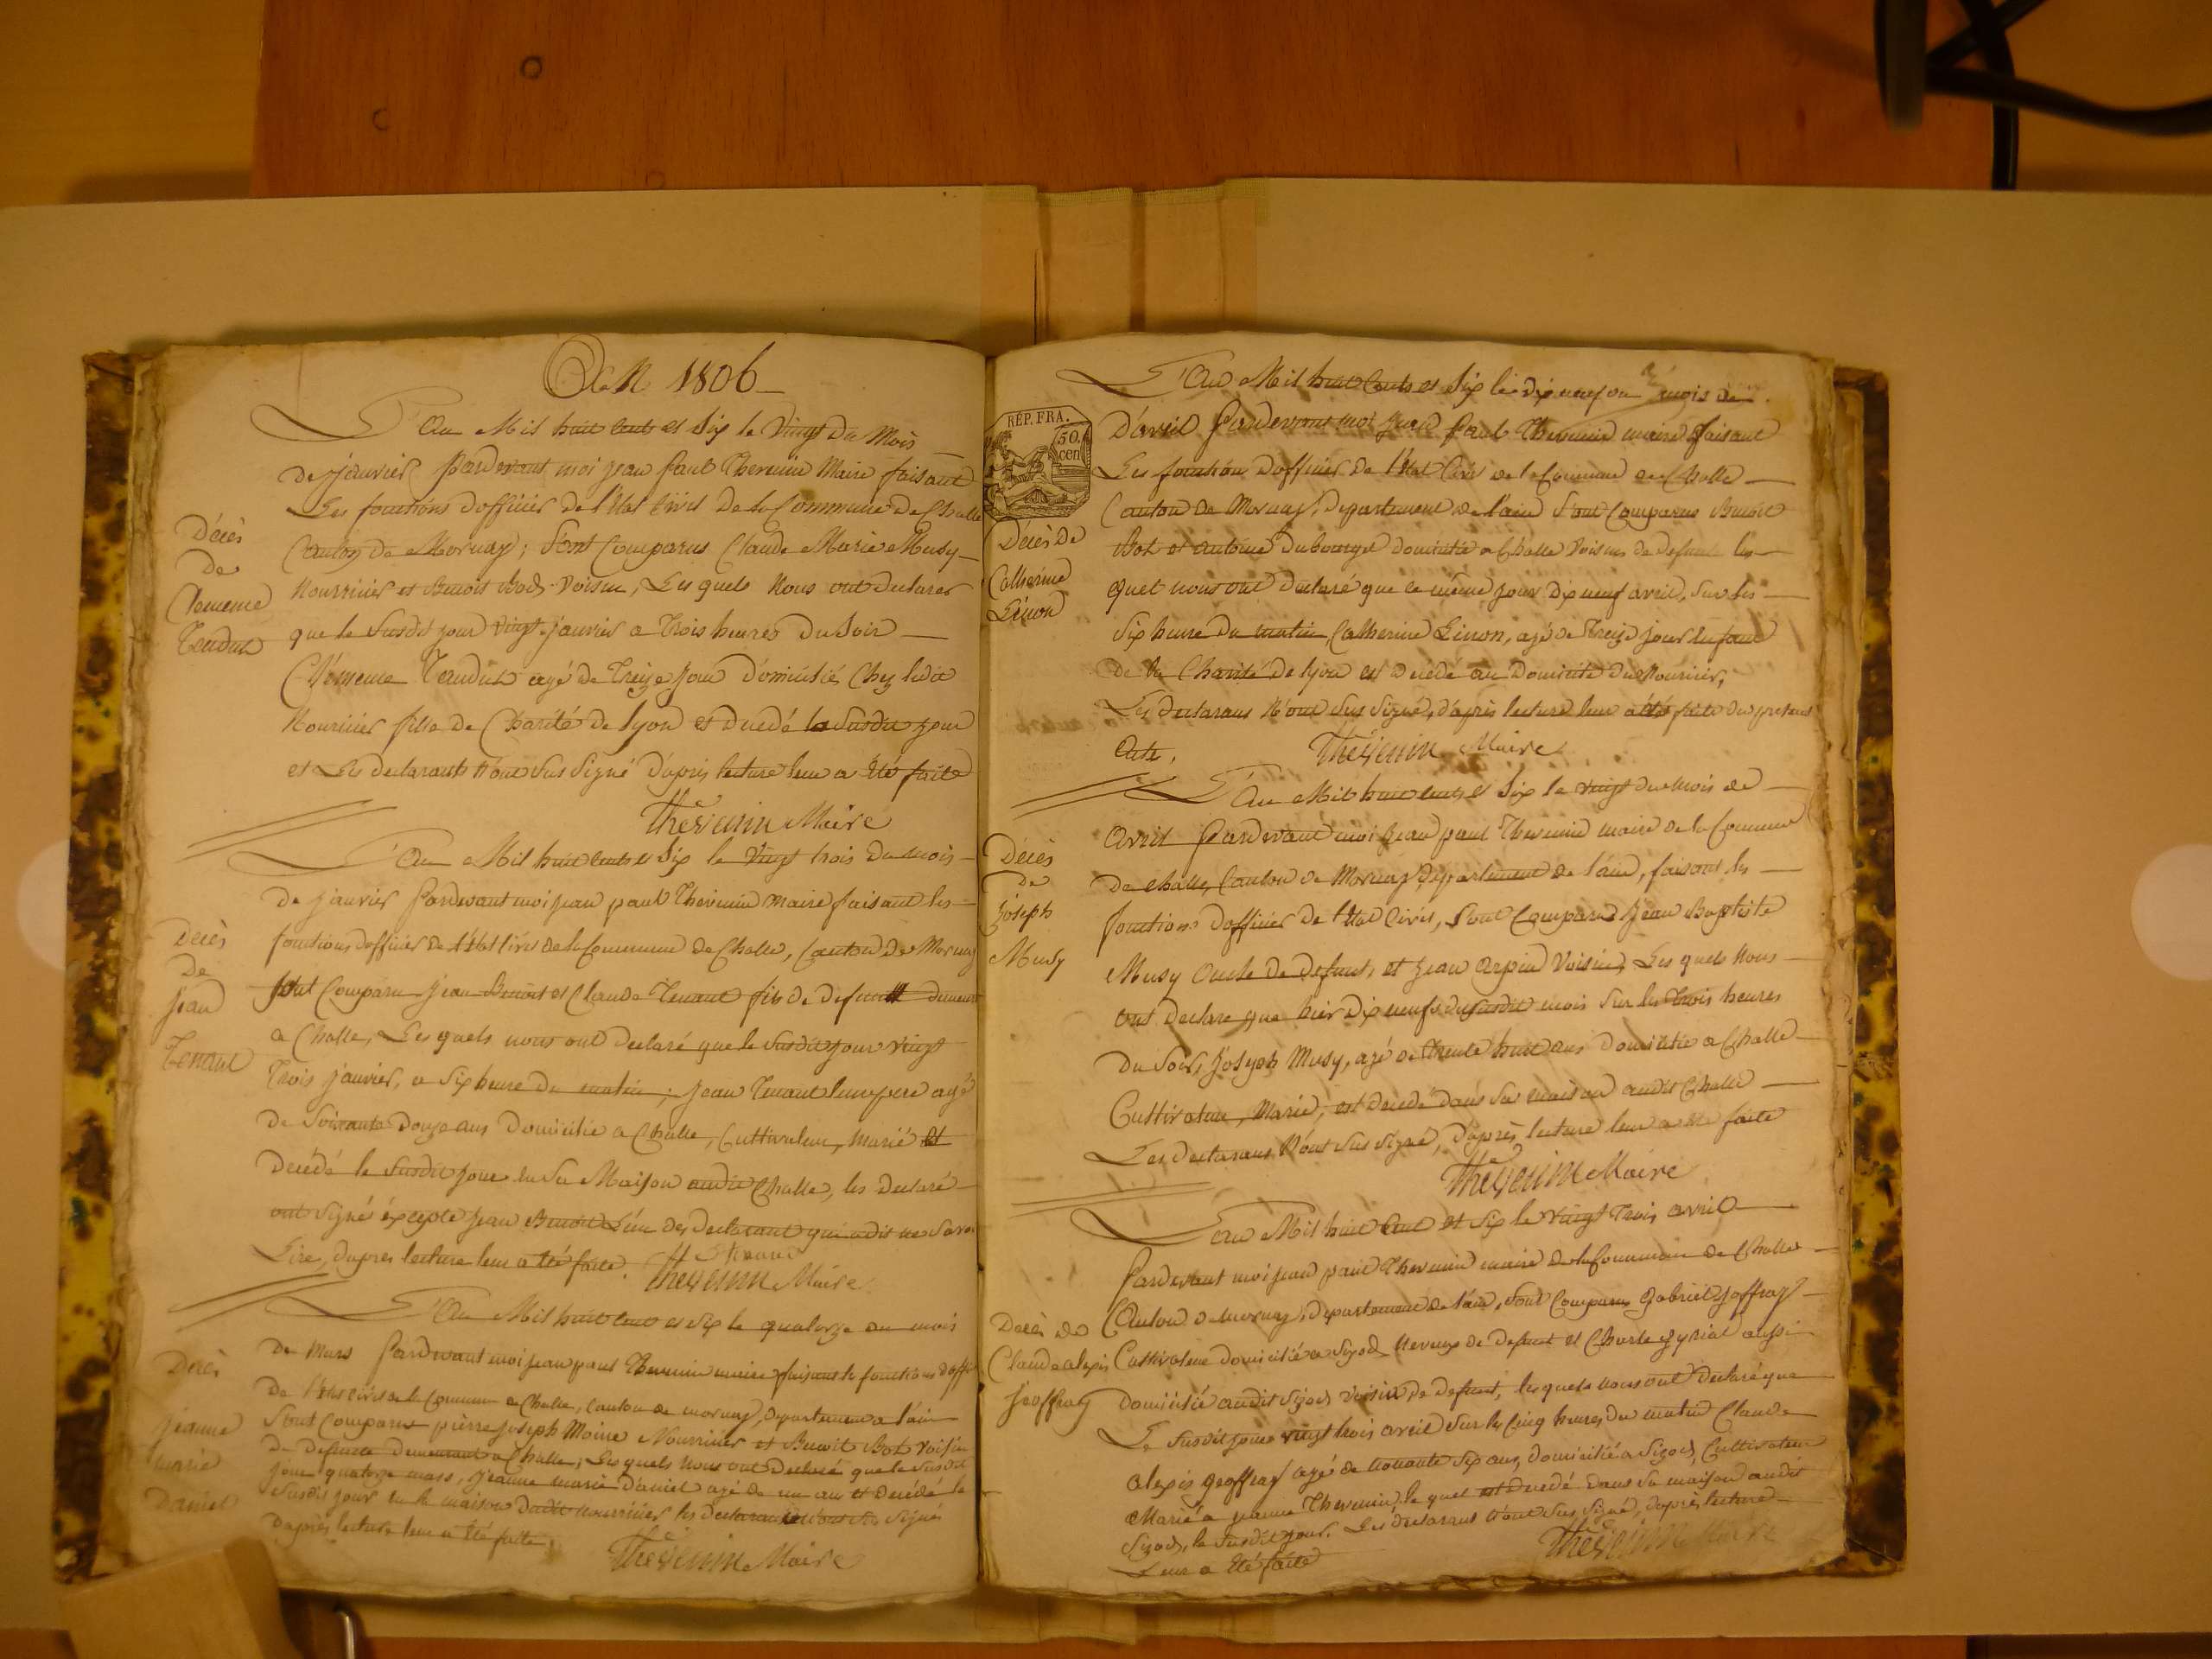 An 1806
L'An Mil huit cent et Six le Vingt du Mois
de janvier pardevant moi jean paul Thevenin Maire faisant
Les fonctions d'officier de l'état civil de la Commune de Challe
Canton de Mornay; Sont Comparus Claude Marie Musy
Nourricier et Benoit Bod voisin, Les quels Nous ont declarer
que le Susdit jour vingt janvier a Trois heures Du Soir
Clémence Tendut agé de Treize jour Domicilié Chez ledit
Nouricier fille de Charité de lyon est decedé le Susdit jour
et Les declarants n'ont Sus Signé D'apris lecture leur a Eté faite
Thevenin Maire
Décès
de
Clemence
Tendut
L'An Mil huit Cents et Six le Vingt trois du mois
de janvier Pardevant moi jean paul Thevenin maire faisant les
fonctions d'officier de l'état civil de la Commune de Challe, Canton de Mornay
Sont Comparu jean Benoit et Claude Tenant fils de defunt
a Challe, Les quels nous ont declaré que le Susdit jour vingt
Trois janvier, a Six heure du matin; jean Tenant leur pere agé
de Soixante Douze ans Domicilié a Challe, Cultivateur, Marié et
Decédé le Susdit jour en Sa Maison audit Challe, les declaré
ont signé éxcepté jean Benoit L'un des declarant qui a dit ne Savoir
Lire, dapres lecture leur a été faite. Tenant
Thevenin Maire
Décès
De
jean
Tenant
L'An Mil huit cent et Six le quatorze du mois
De Mars Pardevant moi jean paul Thevenin maire faisant les fonctions d'offi
De l'état civil de la Commune a Challe, Canton de mornay, Departement a l'ain
Sont Comparus pièrre joseph Moine Nourricier et Benoit Bot voisin
De defunte demeurant a Challe; Les quels Nous ont Declaré que le Susdit
jour quatorze mars, jeanne marie Daniel agé de un an et Decédé le
Susdit jour en la maison Dudit nourricier les declarants n'ont Sus Signés
Dapris lecture leur a Eté faite.
Thevenin Maire
Décès
jeanne
marie
Daniel
L'An Mil huit Cents et Six le dix neuf du mois de
D'avril Pardevant moi jean Paul Thevenin maire faisant
Les fonction d'officier de l'état Civil de la Commune de Challe
Canton de Mornay, Departement de l'ain Sont Comparus Benoit
Bot et Antoine Dubourget domicilié a Challe Voisins de Defunte les
quel nous ont Declaré que ce même jour Dix neuf avril, Sur les
Six heure du matin, Catherine Linon, agé de Treize jour Enfant
de la Charité de lyon est Decedé au Domicile du Nouricier,
Les declarans N'ont Sus Signé, d'aprés lecture leur a été faite du present
Acte.
Thevenin Maire
REP. FRA.
50.
cen
Décès de
Catherine
Linon
L'An Mil huit cents et Six le vingt du Mois de
Avril Pardevant moi jean paul Thevenin maire de la Commune
De Challe, Canton de Mornay Departement de l'ain, faisant les
fonctions d'officier de l'Etat Civil, Sont Comparus jean Baptiste
Musy Oncle de defunt, et jean Arpin Voisin, Les quels Nous
ont Declare que hier Dix neufs du Susdit mois Sur les Trois heures
Du Soir, joseph Musy, agé de Trente huit ans Domicilié a Challe
Cultivateur, Marié; est Decedé dans Sa maison audit Challe
Les Declarans N'ont Sus Signé, D'apris lecture leur a été faite
Thevenin Maire
Décès
de
joseph
Musy
L'an Mil huit Cent et Six le vingt Trois avril
Pardevant moi jean paul Thevenin maire de la Commune de Challe
Canton de mornay, departement de l'ain, Sont Comparus Gabriel joffray
Cultivateur Domicilié a Sizod, Neveux de Defunt et Charle aussi
Domicilié audit Sizod voisin, de Defunt, les quels nous ont Declaré que
Le Susdit jour vingt trois avril Sur les Cinq heures du matin Claude
alexis geoffray agé de nonante Six ans, domicilié a Sizod, Cultivateur
Marié a jeanne Thevenin, le quel est Decedé dans Sa maison audit
Sizod, le Susdit jour. Les Declarans N'ont Sus Signé, D'apris lecture
Leur a Eté faite
Thevenin Maire
Décès de
Claude alexis
joffray